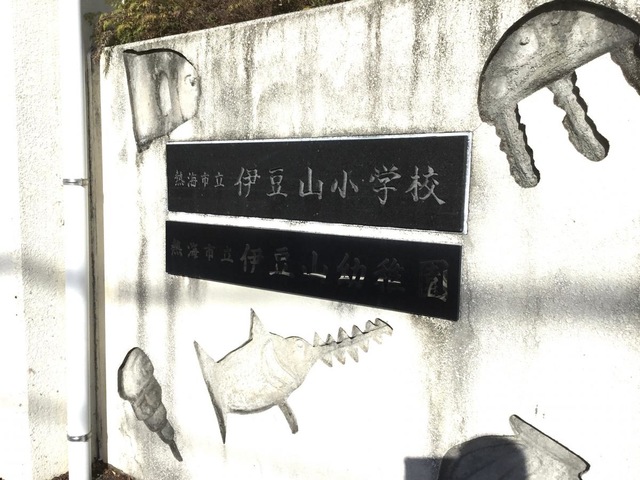 熱海市立 伊豆山小学校
熱海市立 伊豆山幼稚園